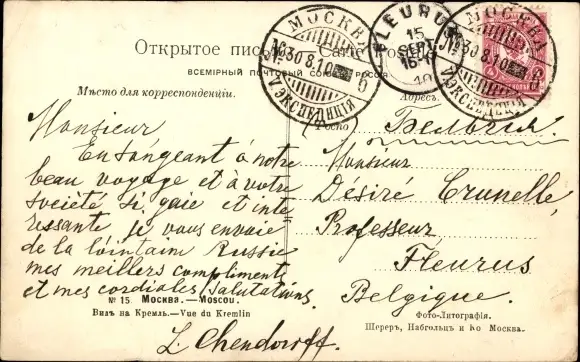 Открытое письмо. Carte Postale
ВСЕМІРНЫЙ ПОЧТОВЫЙ СОЮЗЪ РОССІЯ
Мѣсто для корреспонденціи.
Адресъ.
МОСКВА
30 8.10
6
FLEURUS
15
SEPT
10
МОСКВА
30 8.10
6
Monsieur
En songeant à notre
beau voyage et à votre
société si gaie et inte
ressante je vous envoie
de la lointain Russie
mes meillers compliments
et mes cordiales salutations.
L. Chendoroff
Бельгія.
Monsieur
Desiré Brunelle,
Professeur
Fleurus
Belgique.
№ 15 Москва.—Moscou.
Видъ на Кремль.—Vue du Kremlin
Фото-Литографія.
Шереръ, Набгольцъ и Ко Москва